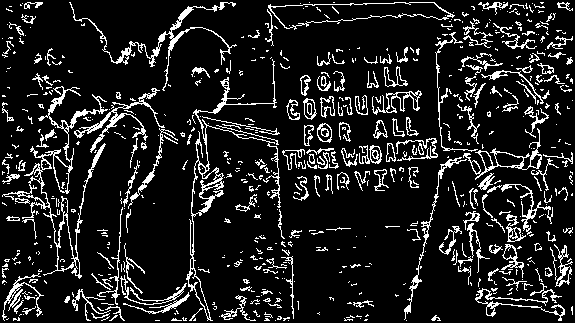 FOR ALL
COMMUNITY
FOR ALL
THOSE WHO
SURVIVE